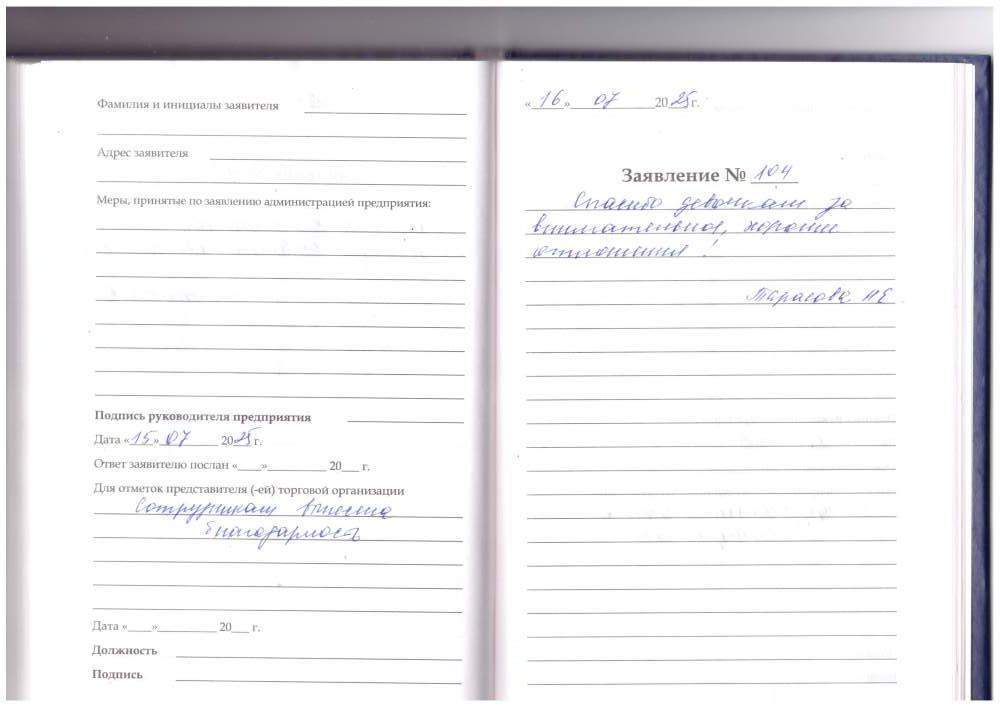 Фамилия и инициалы заявителя
Адрес заявителя
Меры, принятые по заявлению администрацией предприятия:
Подпись руководителя предприятия
Дата «15» 07 2025 г.
Ответ заявителю послан «___»_________ 20__ г.
Для отметок представителя (-ей) торговой организации
Сотрудникам вынесена
благодарность
Дата «___»_________ 20__ г.
Должность
Подпись
«16» 07 2025 г.
Заявление № 104
Спасибо девочкам за
внимательное, хорошее
отношение!
Тарасова НЕ